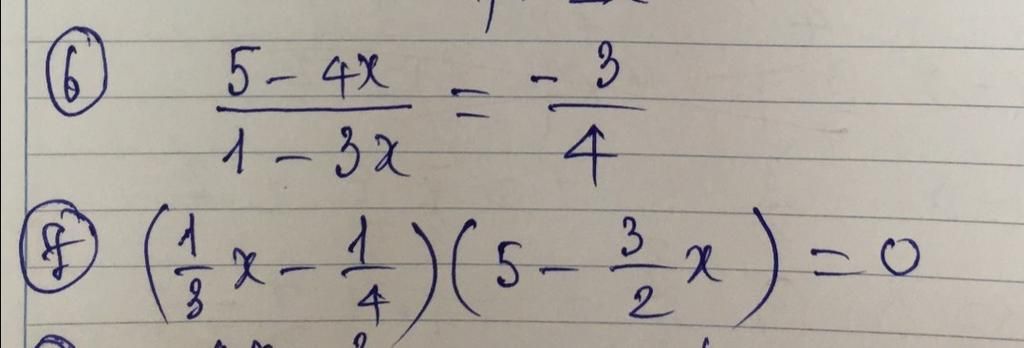 6 (5 - 4x)/(1 - 3x) = -3/4
7 (1/3 x - 1/4)(5 - 3/2 x) = 0